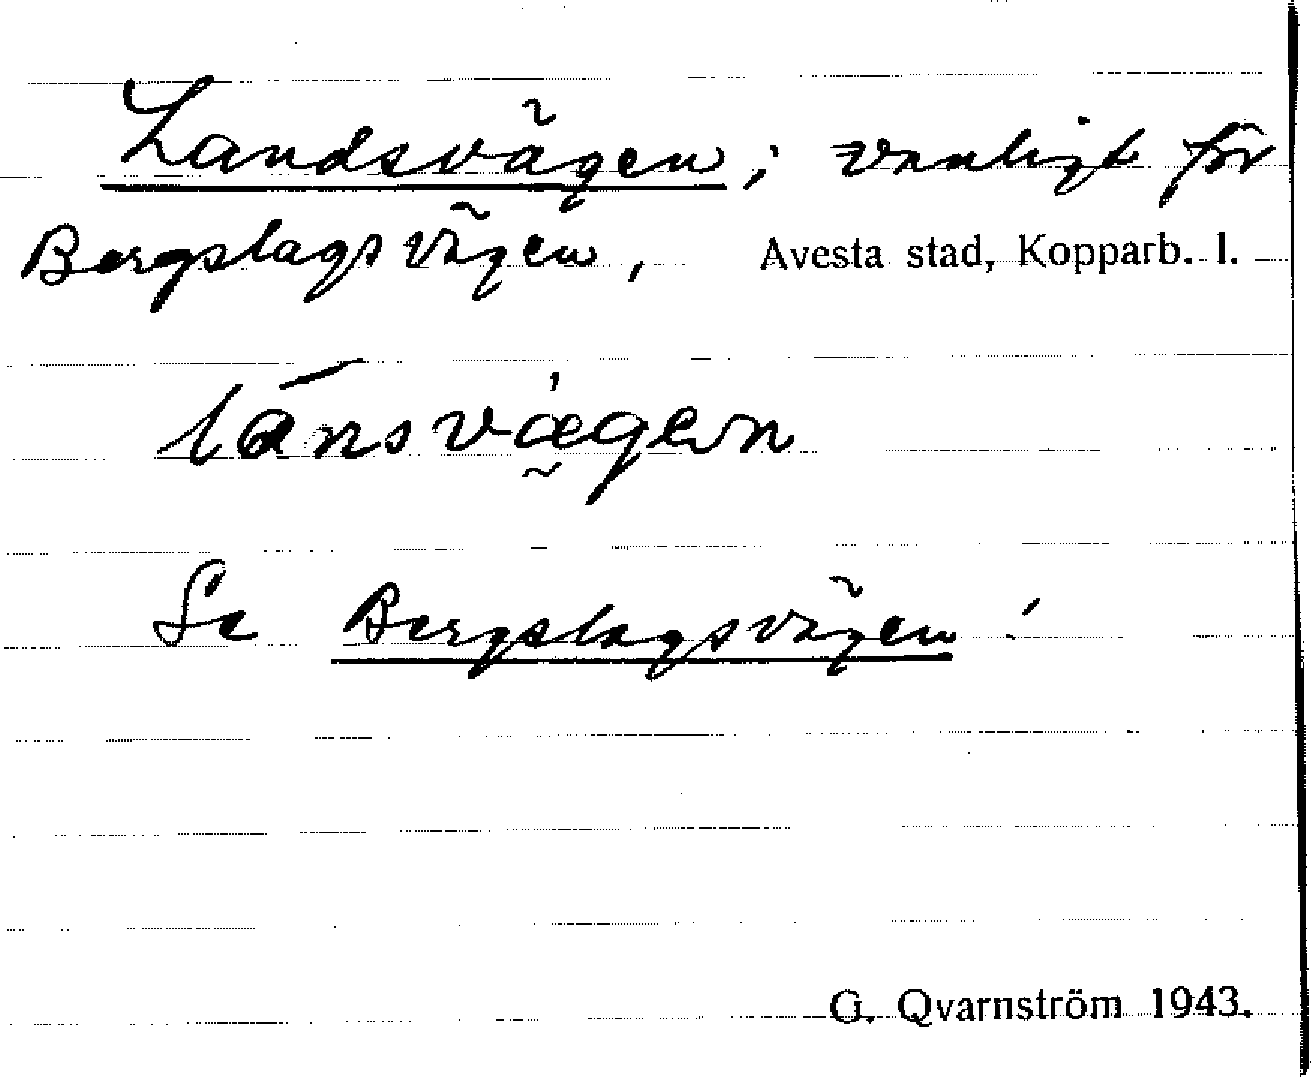 Landsvägen; vanligt för
Bergslagsvägen, Avesta stad, Kopparb. l.
lánsvǽgen
Se Bergslagsvägen!
G. Qvarnström 1943.